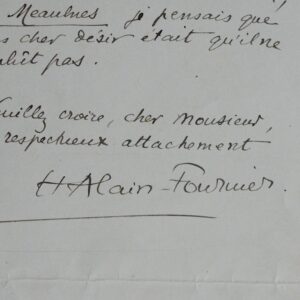 Meaulnes je pensais que
cher désir était qu'il ne
pas.
croire, cher Monsieur,
respectueux attachement
HAlain-Fournier.